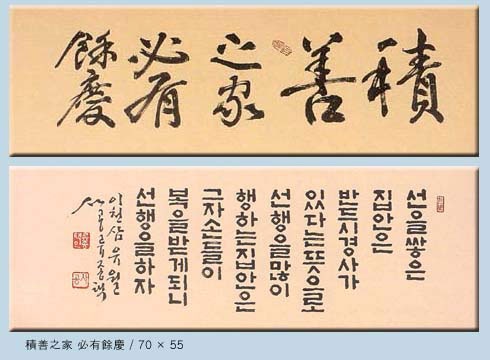 積
善
之家
必有
餘慶
선을쌓은
집안은
반드시경사가
있다는뜻으로
선행을많이
행하는집안은
그자손들이
복을받게되니
선행을하자
이천삼 유월
積善之家 必有餘慶 / 70 × 55